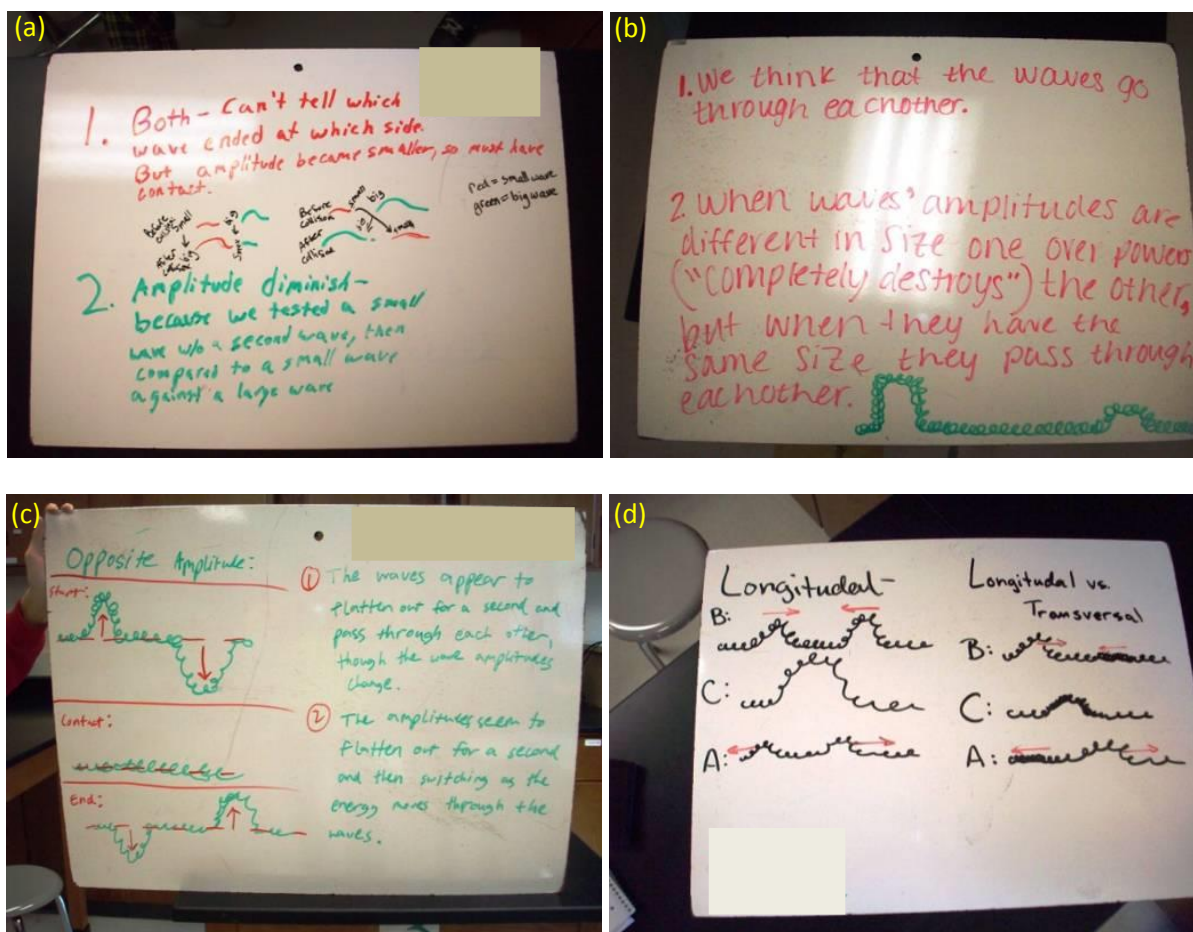 (a)
1. Both - Can't tell which
wave ended at which side.
But amplitude became smaller, so must have
contact.
red = small wave
green = big wave
Before collision small big
After collision big small
Before collision small big
After collision big small
2. Amplitude diminish -
because we tested a small
wave w/o a second wave, then
compared to a small wave
against a large wave
(b)
1. We think that the waves go
through eachother.
2. When waves' amplitudes are
different in size one over powers
("completely destroys") the other,
but when they have the
same size they pass through
eachother.
(c)
Opposite Amplitude:
Start:
Contact:
End:
1 The waves appear to
flatten out for a second and
pass through each other,
though the wave amplitudes
change.
2 The amplitudes seem to
flatten out for a second
and then switching as the
energy moves through the
waves.
(d)
Longitudal-
B:
C:
A:
Longitudal vs.
Transversal
B:
C:
A: